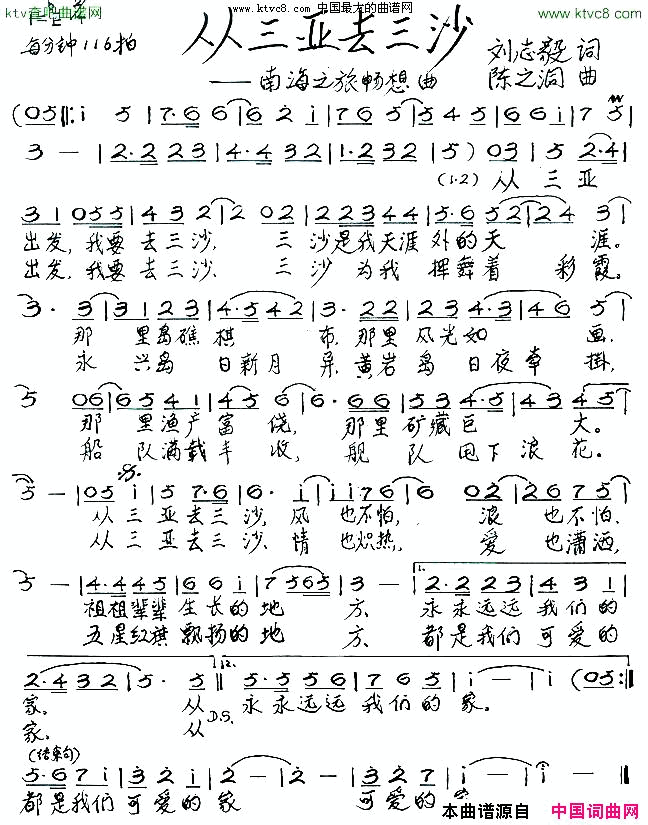 ktv吉吧曲谱网 www.ktvc8.com 中国最大的曲谱网 www.ktvc8.com
每分钟116拍
从三亚去三沙
——南海之旅畅想曲
刘志毅 词
陈之涧 曲
(05|:i 5|7·6 6|6 2 i|7 6 7 5|5 4 5|6 6 i|7 5|
3 —|2·2 2 3|4·4 3 2|1·2 3 2|5)0 3|5 2·4|
(1.2) 从 三亚
3 1 0 5 5|4 3 2|2 0 2|2 2 3 4 4|5·6 5 2|2 4 3|
出发,我要去三沙, 三沙是我天涯外的天涯。
出发,我要去三沙、 三沙为我挥舞着彩霞。
3· 3|3 1 2 3|4·5 4 2|3· 2 2|2 3 4·3|4 6 5|
那里岛礁棋布,那里风光如画,
永兴岛日新月异,黄岩岛日夜牵挂,
5 0 6|6 5 4 1|4 5 6|6· 6 6|5 3 4·5|4·3 4 5|
那里渔产富饶,那里矿藏巨大。
船队满载丰收,舰队甩下浪花。
5 —|0 5 i|5 7·6|6· i|i i 7 6|6 0 2|2 6 7 5|
从三亚去三沙,风也不怕,浪也不怕、
从三亚去三沙、情也炽热,爱也潇洒,
5 —|4·4 4 5|6 6 i|7 5 6 5|3 —|1. 2·2 2 3|4 3 i|
祖祖辈辈生长的地方、永永远远我们的
五星红旗飘扬的地方、都是我们可爱的
2·4 3 2|5· 5‖12. 5·5 5 6|7 6 5|i —|i (0 5:‖
家。 从 D.S. 永永远远我们的家。
家. 从
(结束句)
5·6 7 i|3 2 i|2 —|2 —|3 2 i|i —|i —‖
都是我们可爱的家 可爱的
本曲谱源自 中国词曲网